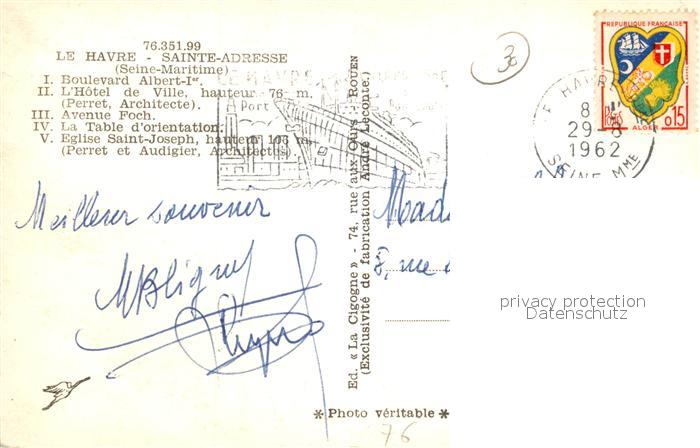 76.351.99
LE HAVRE - SAINTE-ADRESSE
(Seine-Maritime)
I. Boulevard Albert-Ier.
II. L'Hôtel de Ville, hauteur 76 m.
(Perret, Architecte).
III. Avenue Foch.
IV. La Table d'orientation.
V. Eglise Saint-Joseph, hauteur 106 m.
(Perret et Audigier, Architectes)
Port
30
REPUBLIQUE FRANÇAISE
Postes 0,15
ALGER
LE HAVRE
8 H
29-8
1962
SEINE Mme
Meilleur souvenir
Ed. « La Cigogne » - 74, rue aux Ours - ROUEN
(Exclusivité de fabrication André Leconte)
Mada
8, rue
privacy protection
Datenschutz
* Photo véritable *
76